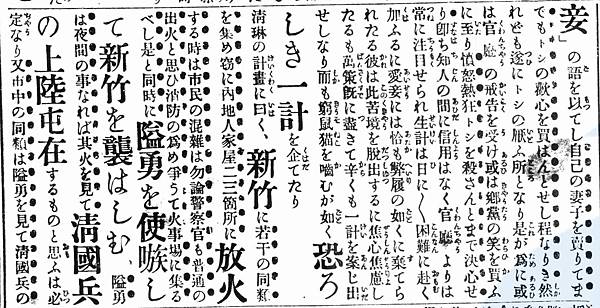 妾」の語を以てし自己の妻子を賣りてま
でもトシの歡心を買はんとせし程なりき然
れども遂にトシの厭ふ所となり是が爲に或
は官廳の戒告を受け或は鄕黨の笑を買ふ
に至り憤怒熱狂トシを殺さんとまで決心せ
り卽ち知人の間に信用はなく官廳よりは
常に注目せられ生計は日に〳〵困難に赴く
加ふるに愛妾には恰も弊履の如くに棄てら
れたる彼は此苦境を脱出するに焦心焦慮し
たるも萬策旣に盡きて辛くも一計を案じ出
せしなり而も窮鼠猫を嚙むが如く恐ろ
しき一計を企てたり
淸琳の計畫に曰く、新竹に若干の同類
を集め窃に內地人家屋二三箇所に放火
する時は市民の混雜は勿論警察官も普通の
出火と思ひ消防の爲め爭うて火事場に集る
べし是と同時に隘勇を使嗾し
て新竹を襲はしむ、隘勇
は夜間の事なれば其火を見て淸國兵
の上陸屯在するものと思ふは必
定なり又市中の同類は隘勇を見て淸國兵の